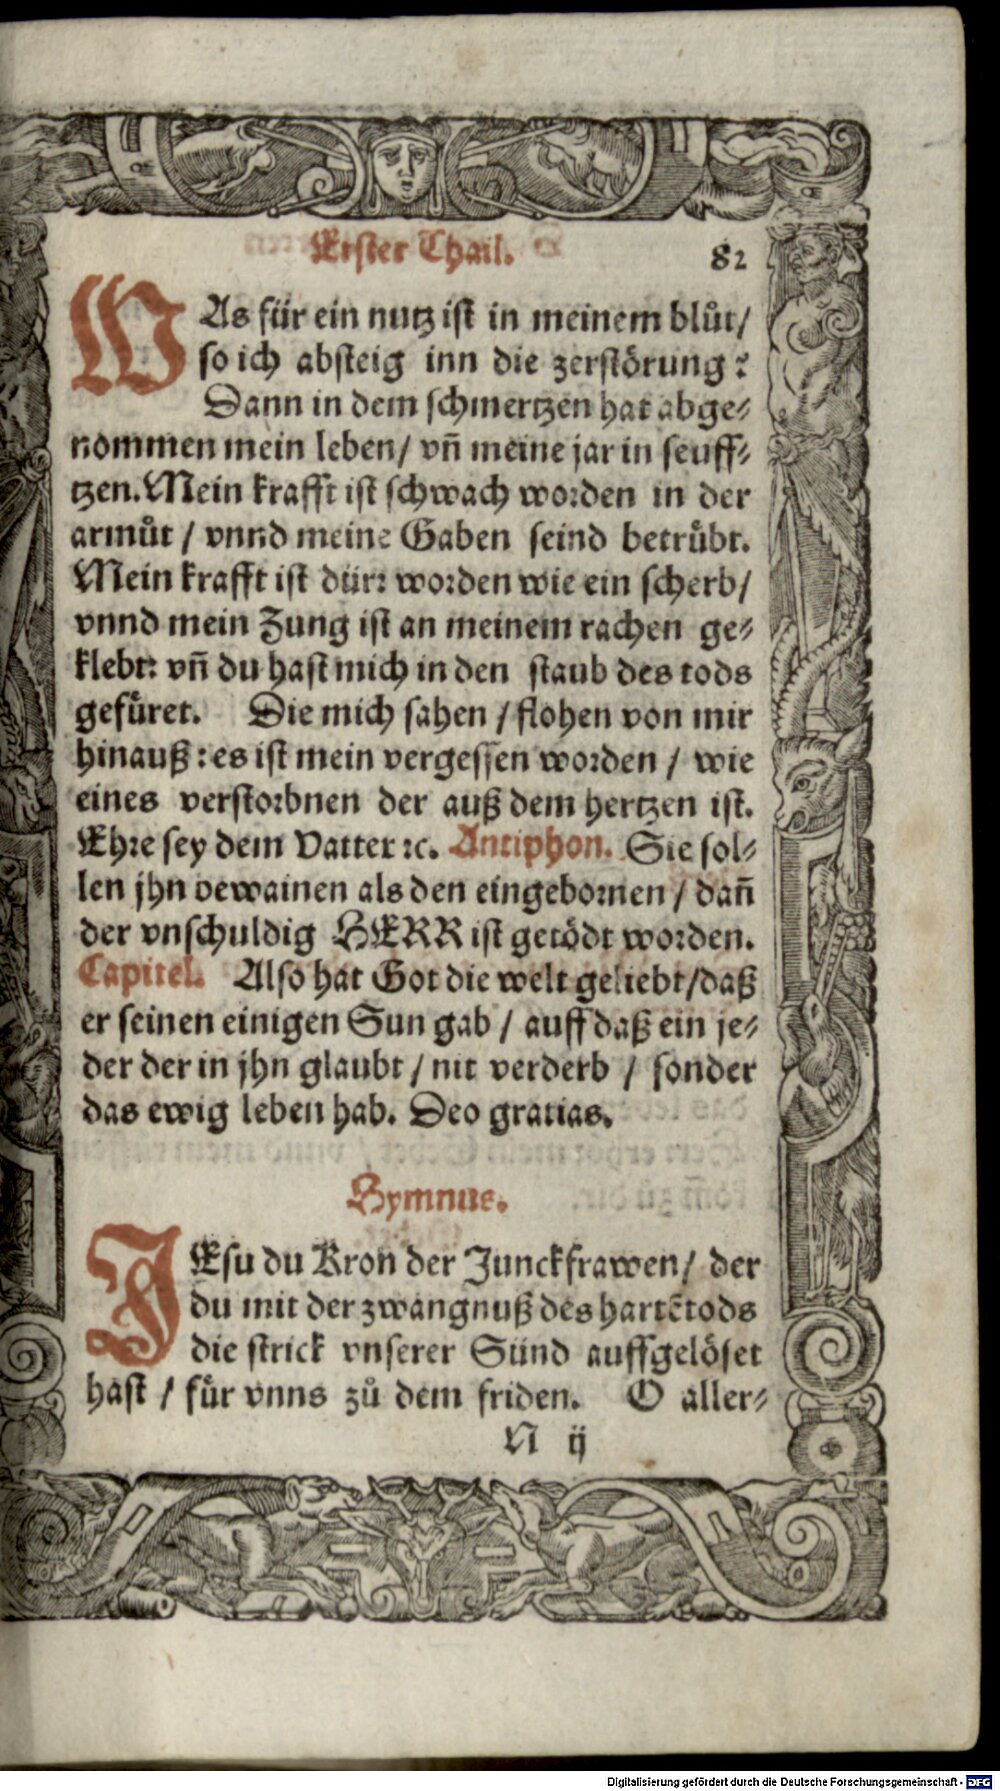 Erster Thail. 82
WAs für ein nutz ist in meinem blůt/
so ich absteig inn die zerstörung?
Dann in dem schmertzen hat abge⸗
nommen mein leben/ vñ meine jar in seuff⸗
tzen. Mein krafft ist schwach worden in der
armůt / vnnd meine Gaben seind betrůbt.
Mein krafft ist dürr worden wie ein scherb/
vnnd mein Zung ist an meinem rachen ge⸗
klebt: vñ du hast mich in den staub des tods
gefüret. Die mich sahen / flohen von mir
hinauß: es ist mein vergessen worden / wie
eines verstorbnen der auß dem hertzen ist.
Ehre sey dem Vatter ꝛc. Antiphon. Sie sol⸗
len jhn bewainen als den eingebornen / dañ
der vnschuldig HERR ist getödt worden.
Capitel. Also hat Got die welt geliebt/daß
er seinen einigen Sun gab / auff daß ein je⸗
der der in jhn glaubt / nit verderb / sonder
das ewig leben hab. Deo gratias.
Hymnus.
JEsu du Kron der Junckfrawen/ der
du mit der zwangnuß des hartẽ tods
die strick vnserer Sünd auffgelöset
hast / für vnns zů dem friden. O aller⸗
N ij
Digitalisierung gefördert durch die Deutsche Forschungsgemeinschaft - DFG